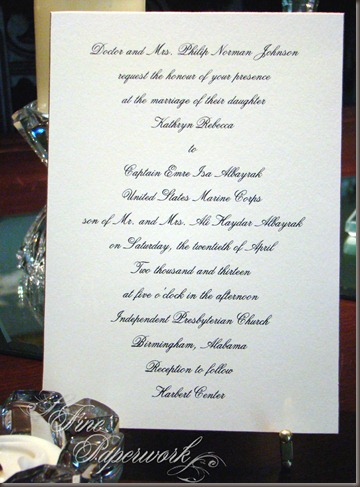 Doctor and Mrs. Philip Norman Johnson
request the honour of your presence
at the marriage of their daughter
Kathryn Rebecca
to
Captain Emre Isa Albayrak
United States Marine Corps
son of Mr. and Mrs. Ali Haydar Albayrak
on Saturday, the twentieth of April
Two thousand and thirteen
at five o'clock in the afternoon
Independent Presbyterian Church
Birmingham, Alabama
Reception to follow
Harbert Center
Fine
Paperwork